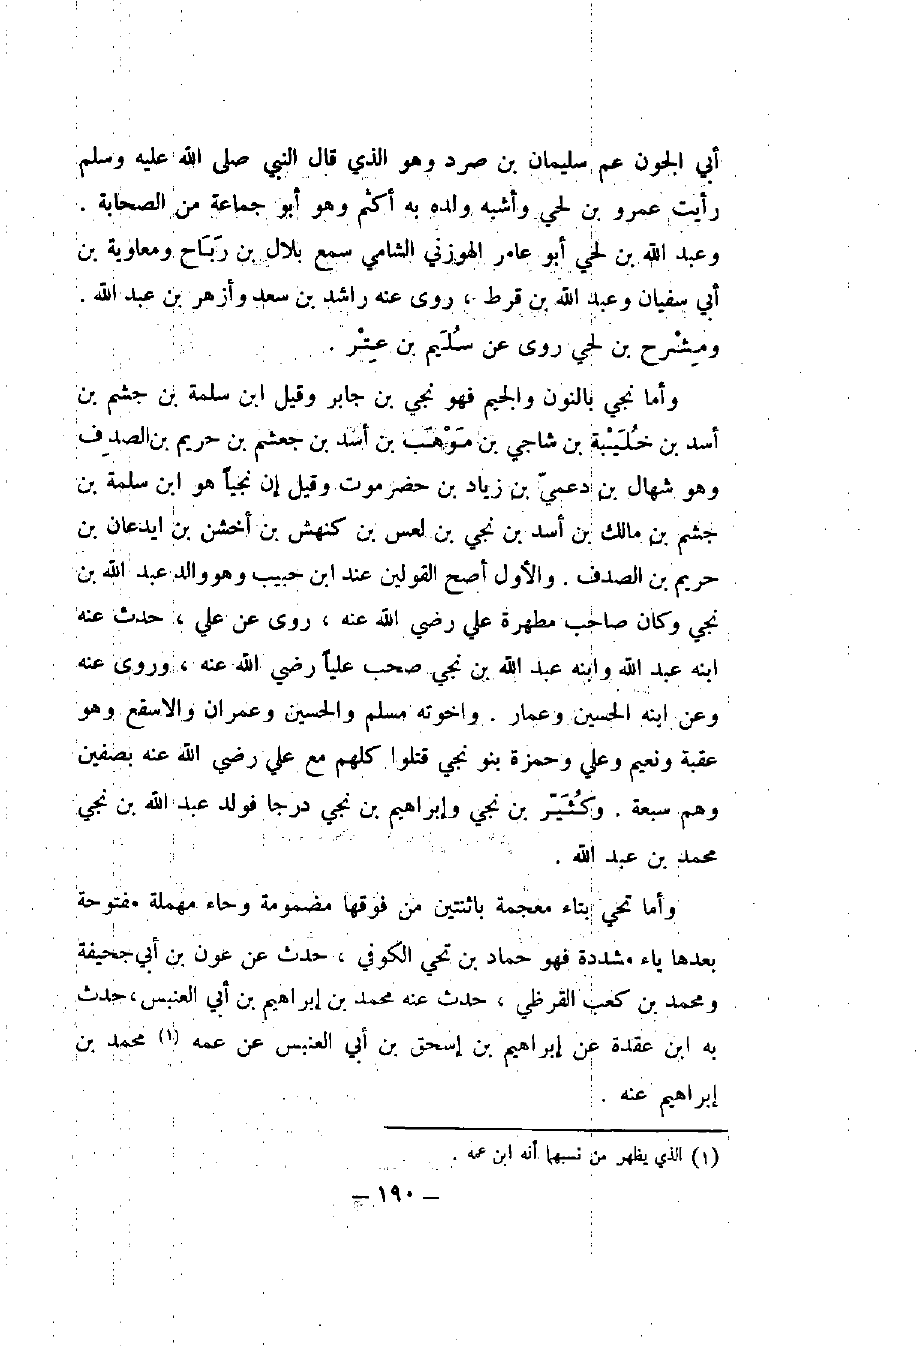 أبي الجون عم سليمان بن صرد وهو الذي قال النبي صلى الله عليه وسلم
رأيت عمرو بن لحي وأشبه ولده به أكثم وهو أبو جماعة من الصحابة .
وعبد الله بن لحي أبو عامر الهوزني الشامي سمع بلال بن رَبَاح ومعاوية بن
أبي سفيان وعبد الله بن قرط ، روى عنه راشد بن سعد وأزهر بن عبد الله .
ومِشْرح بن لحي روى عن سُلَيم بن عِتْر .
وأما نجي بالنون والجيم فهو نجي بن جابر وقيل ابن سلمة بن جشم بن
أسد بن خُلَيْبة بن شاجي بن مَوْهَب بن أسد بن جعشم بن حريم بن الصدف
وهو شهال بن دعميّ بن زياد بن حضرموت وقيل إن نجياً هو ابن سلمة بن
جشم بن مالك بن أسد بن نجي بن لعس بن كنهش بن أخشن بن ايدعان بن
حريم بن الصدف . والأول أصح القولين عند ابن حبيب وهو والد عبد الله بن
نجي وكان صاحب مطهرة علي رضي الله عنه ، روى عن علي ، حدث عنه
ابنه عبد الله وابنه عبد الله بن نجي صحب علياً رضي الله عنه ، وروى عنه
وعن ابنه الحسين وعمار . واخوته مسلم والحسين وعمران والاسقع وهو
عقبة ونعيم وعلي وحمزة بنو نجي قتلوا كلهم مع علي رضي الله عنه بصفين
وهم سبعة . وكُثَيّر بن نجي وإبراهيم بن نجي درجا فولد عبد الله بن نجي
محمد بن عبد الله .
وأما تحي بتاء معجمة باثنتين من فوقها مضمومة وحاء مهملة مفتوحة
بعدها ياء مشددة فهو حماد بن تحي الكوفي ، حدث عن عون بن أبي جحيفة
ومحمد بن كعب القرظي ، حدث عنه محمد بن إبراهيم بن أبي العنبس، حدث
به ابن عقدة عن إبراهيم بن إسحق بن أبي العنبس عن عمه (١) محمد بن
إبراهيم عنه .
(١) الذي يظهر من نسبهما أنه ابن عمه .
– ١٩٠ –